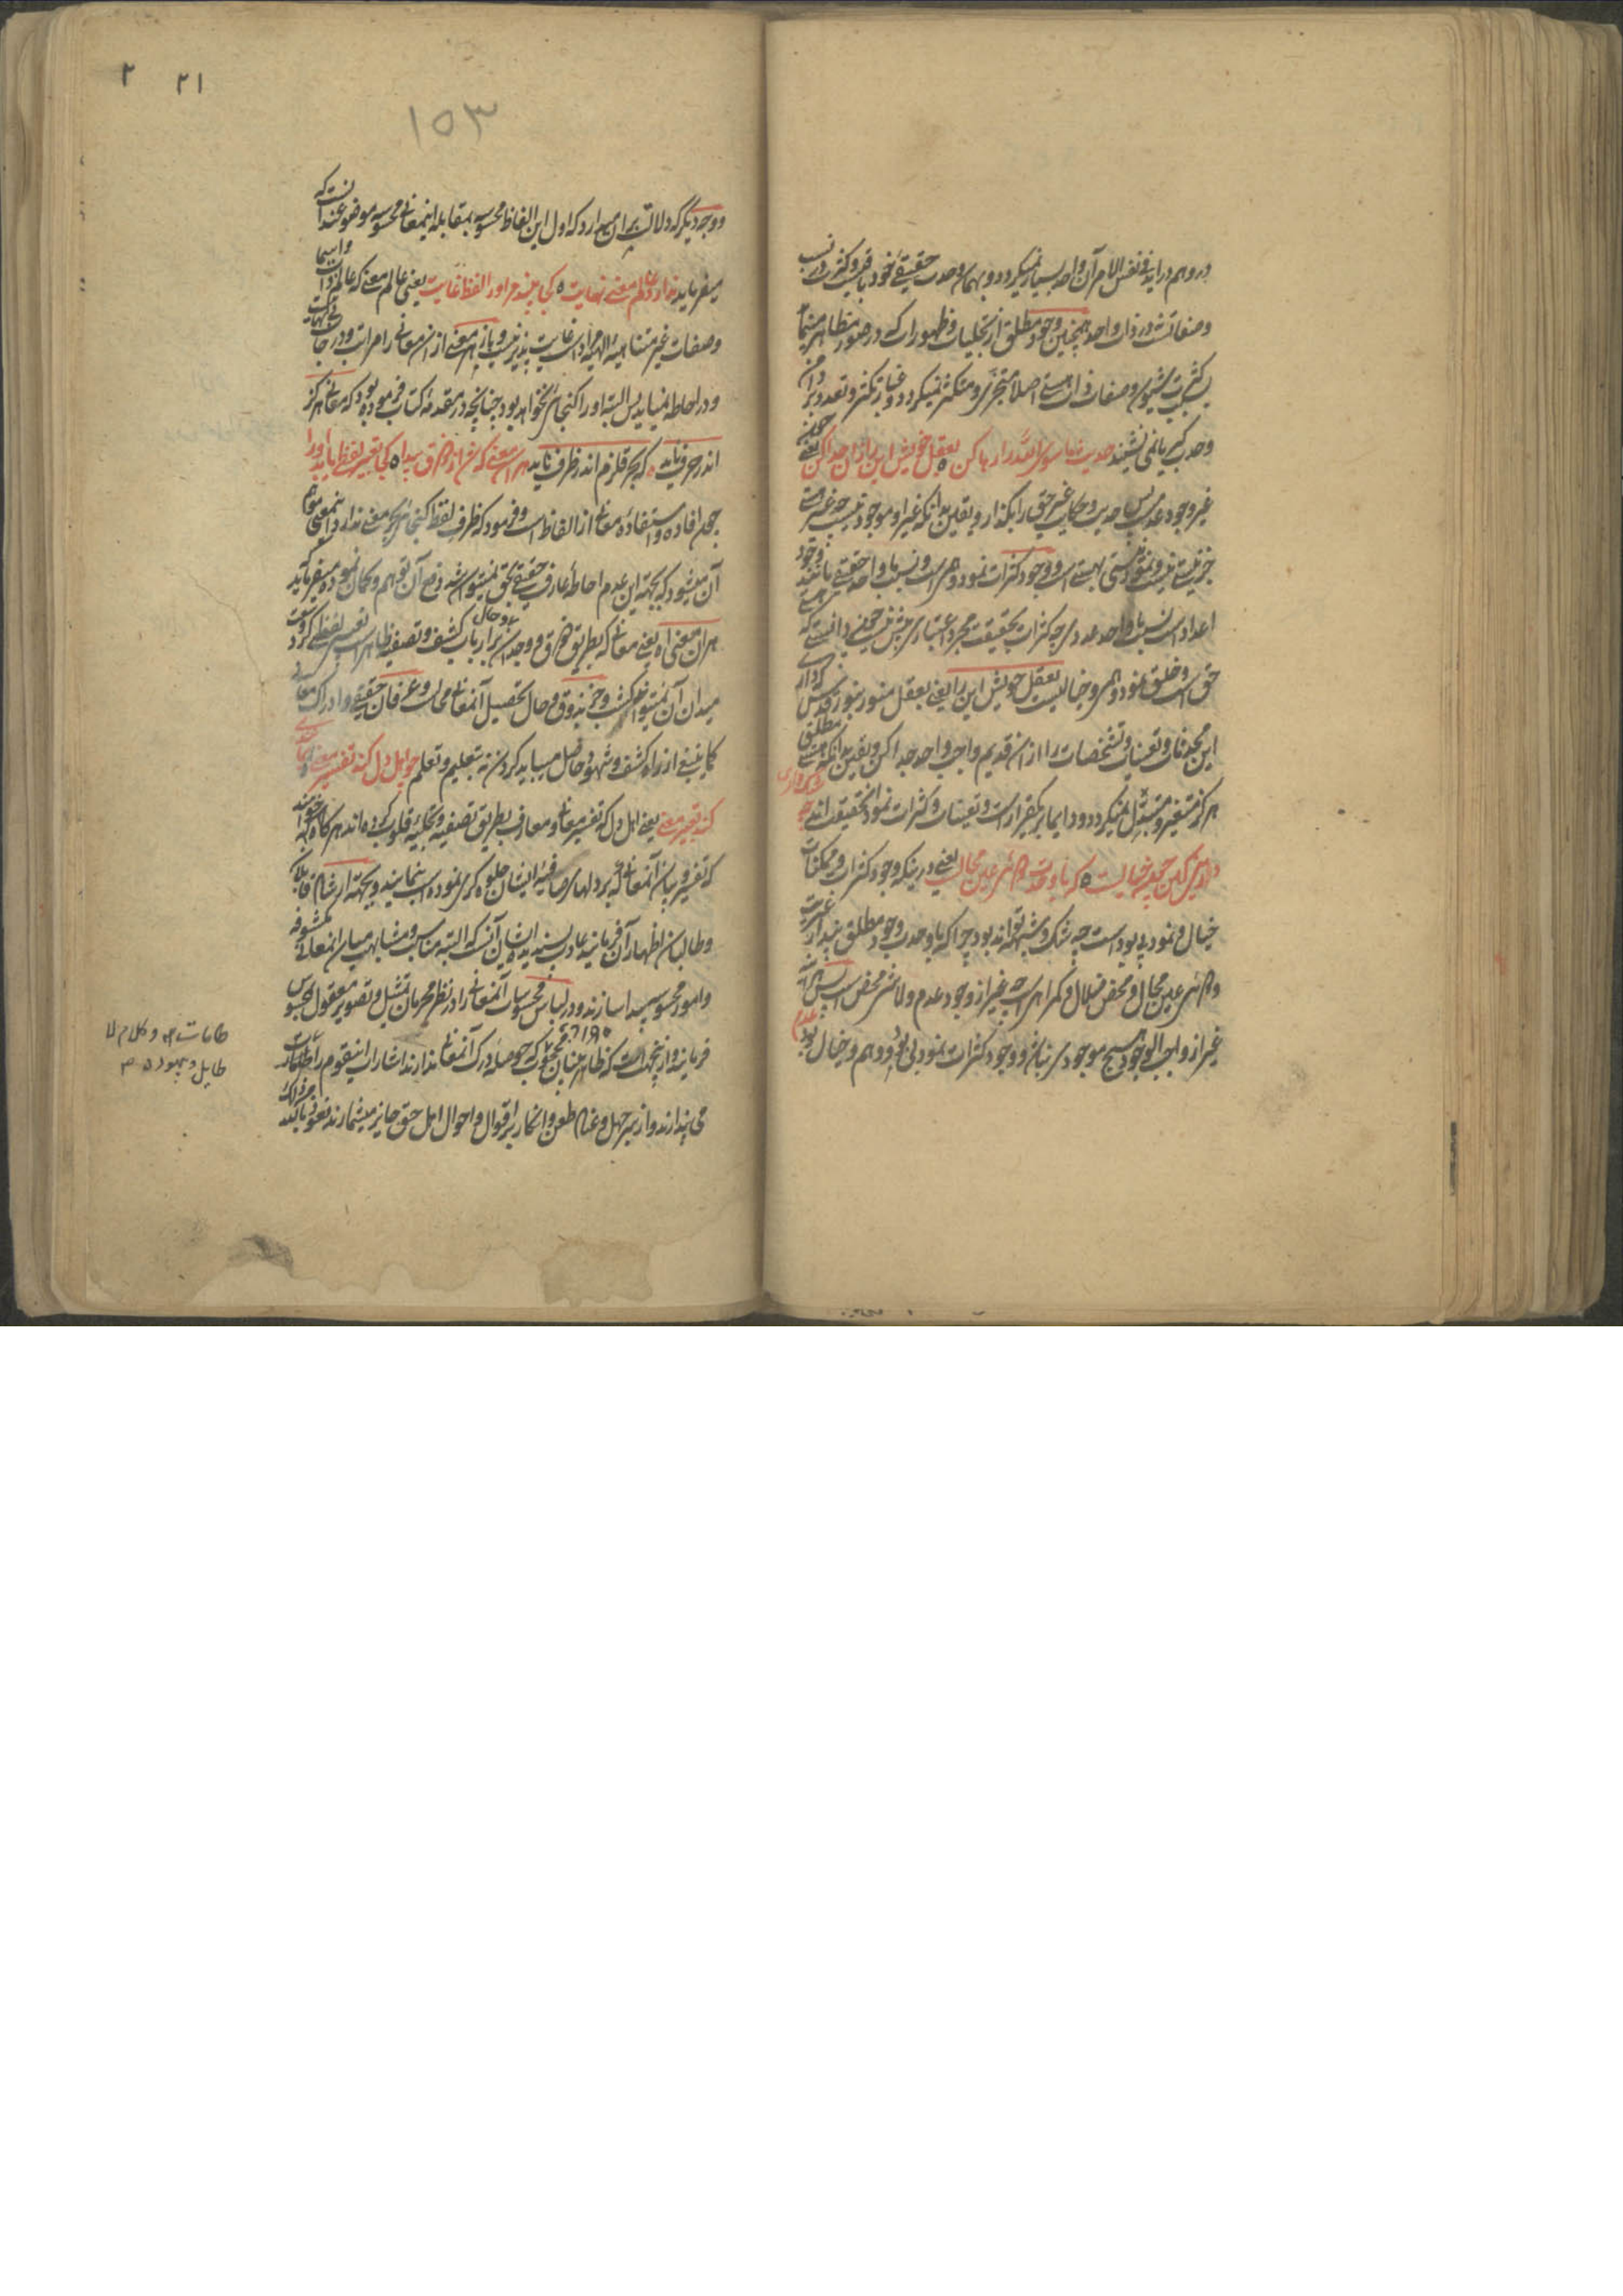 در وهم دراید فی نفس الامر آن واحد بسیار نمیگردد و بهمان وحدت حقیقیٔ خود باقیست و کثرت در نسب
وصفاتست نه در ذات واحد همچنین وجود مطلق از تجلیات و ظهورات که در صور مظاهر مینماید
بکثرت شیون و صفات ذات هستی اصلا متجزی و متکثر نمیگردد و غبار تکثر و تعدد بر دامن
وحدت کبریا نمی نشیند حدیث ماسوی الله را رها کن ٥ بعقل خویش این را زان جدا کن یعنی چون
غیر وجود عدمست پس حدیث و حکایت غیر حق را بگذار و یقین بدانکه غیر او موجود نیست چه غیر هستی
جز نیستی نیست و نمود نیستی بهستی است و وجود کثرات نمود وهمی است و نسبت با واحد حقیقی مانند وجود
اعداد است نسبت با واحد عددی چه کثرات بحقیقت مجرد اعتباری بیش نیستند چون دانستی که هستی
حق است و خلق نمود وهمی و خیالیست بعقل خویش این را یعنی بعقل منور بنور قدس که داری
این محدثات و تعینات و تشخصات را از ان قدیم واجب واحد جدا کن و یقین بدانکه هستی مطلق
هرگز متغیر و متبدل نمیگردد و دایما بر یکقرار است و تعینات و کثرات نمود بیحقیقت اند چه شک داری
در این کین چون خیالست ٥ که با وحدت دوئی عین محالست یعنی در اینکه وجود کثرات و ممکنات
خیال و نمود بی بود است چه شک و شبهه تواند بود چرا که با وحدت وجود مطلق پندار غیریت
و دوئی عین محال و محض ضلال و گمراهی است چه غیر از وجود عدم و لا شیٔ محض است پس هر آینه
غیر از واجب الوجود هیچ موجودی نباشد و وجود کثرات نمود بی بود و وهم و خیال بود عدم
٢ ٢١
١٥٣
و وجه دیگر که دلالت بر ان میدارد که اول این الفاظ محسوسه بمقابله اینمعانی محسوسه موضوع شده اند انست که
میفرماید ندارد عالم معنی نهایت ٥ کجا بیند مر او را لفظ غایت یعنی عالم معنی که عالم ذات و اسما
و صفات غیر متناهیهٔ الهیه مراد است غایت پذیر نیست و باز هر معنی از ان معانی را مراتب و درجات بی نهایت
و در احاطه نمیاید پس البته او را گنجائی نخواهد بود چنانچه در مقدمهٔ کتاب فرموده بود که معانی هرگز
اندر حرف ناید ٥ که بحر قلزم اندر ظرف ناید هر ان معنی که شد از ذوق پیدا ٥ کجا تعبیر لفظی یابد او را
چون افاده و استفادهٔ معانی از الفاظ است و فرمود که ظرف لفظ گنجائی بحر معنی ندارد و اینمعنی موهم
آن میشود که بجهة این عدم احاطه عارف حقیقی محقق نمیتوان شد دفع آن توهم و گمان نموده میفرماید که
هر ان معنی اه یعنی معانی که بطریق ذوق و وجدان و حال بر ارباب کشف و تصفیه ظاهر است تعبیر لفظی کرد و بعبارت
میدان آن نمیتوان گشت و جز بذوق و حال تحصیل آنمعانی محالست و عرفان حقیقی و ادراک معانی
کما ینبغی از راه کشف و شهود حاصل میباید کردن نه بتعلیم و تعلم چو اهل دل کند تفسیر معنی بمانندی
کند تعبیر معنی یعنی اهل دل که تفسیر معانی و معارف بطریق تصفیه و تجلیهٔ قلوب کرده اند هرگاه که خواهند
که تفسیر و بیان آنمعانی که بر دلهای صافیهٔ ایشان جلوه گری نموده است بنمایند و بجهة ارشاد قابلان
و طالبان اظهار آن فرمایند عادت پسندیده ایشان آنست که البته مناسبت و مشابهت میان انمعانی مکشوفه
و امور محسوسه پیدا سازند و در لباس محسوسات آنمعانی را در نظر محرمان تمثیل و تصویر معقول بمحسوس
فرمایند و از ینجهت است که ظاهر بینان محجوب که حوصلهٔ درک آنمعانی ندارند اشارات اینقوم را طامات
می پندارند و از سر جهل و عناد طعن و انکار بر اقوال و احوال اهل حق جایز میشمارند نعوذ بالله من ذلک
طامات و کلام لا
طایل و بیهوده